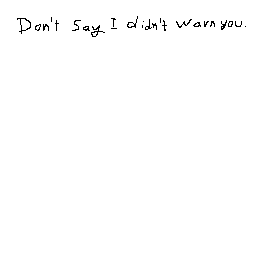 Don't say I didn't warn you.